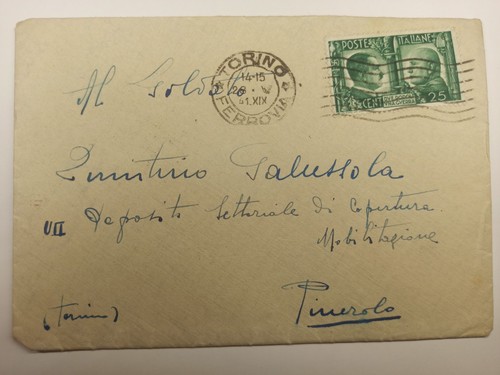 TORINO
14-15
26 · V
41.XIX
FERROVIA
POSTE ITALIANE
CENT 25
DUE POPOLI
UNA GUERRA
Al Soldato
Galussola
VII Deposito Settoriale di Copertura
Mobilitazione
Pinerolo
(Torino)